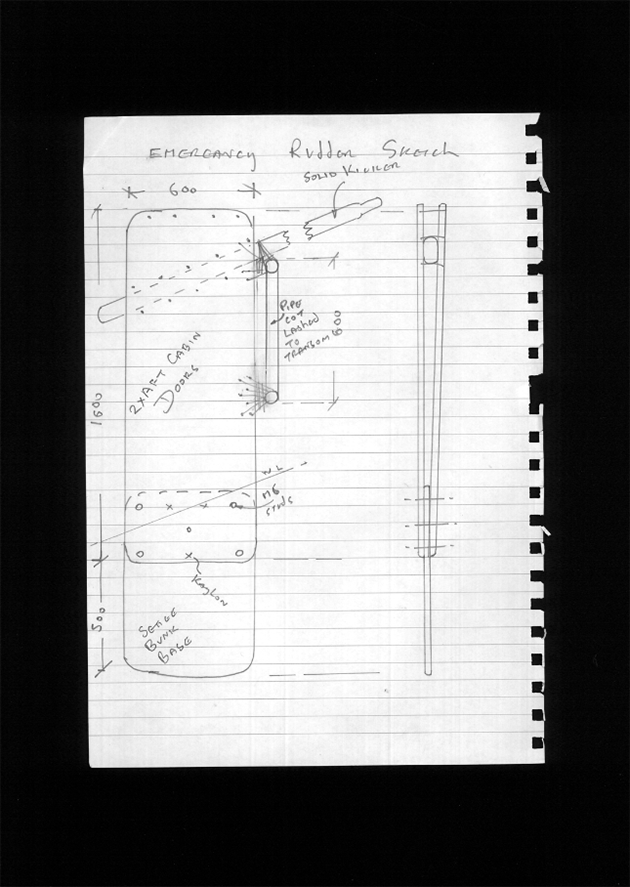 EMERGANCY Rudder Sketch
600
SOLID
PIPE
COT
LASHED
TO
TRANSOM
600
2 x AFT CABIN
DOORS
1600
W.L
M6
STUDS
500
BUNK
BASE